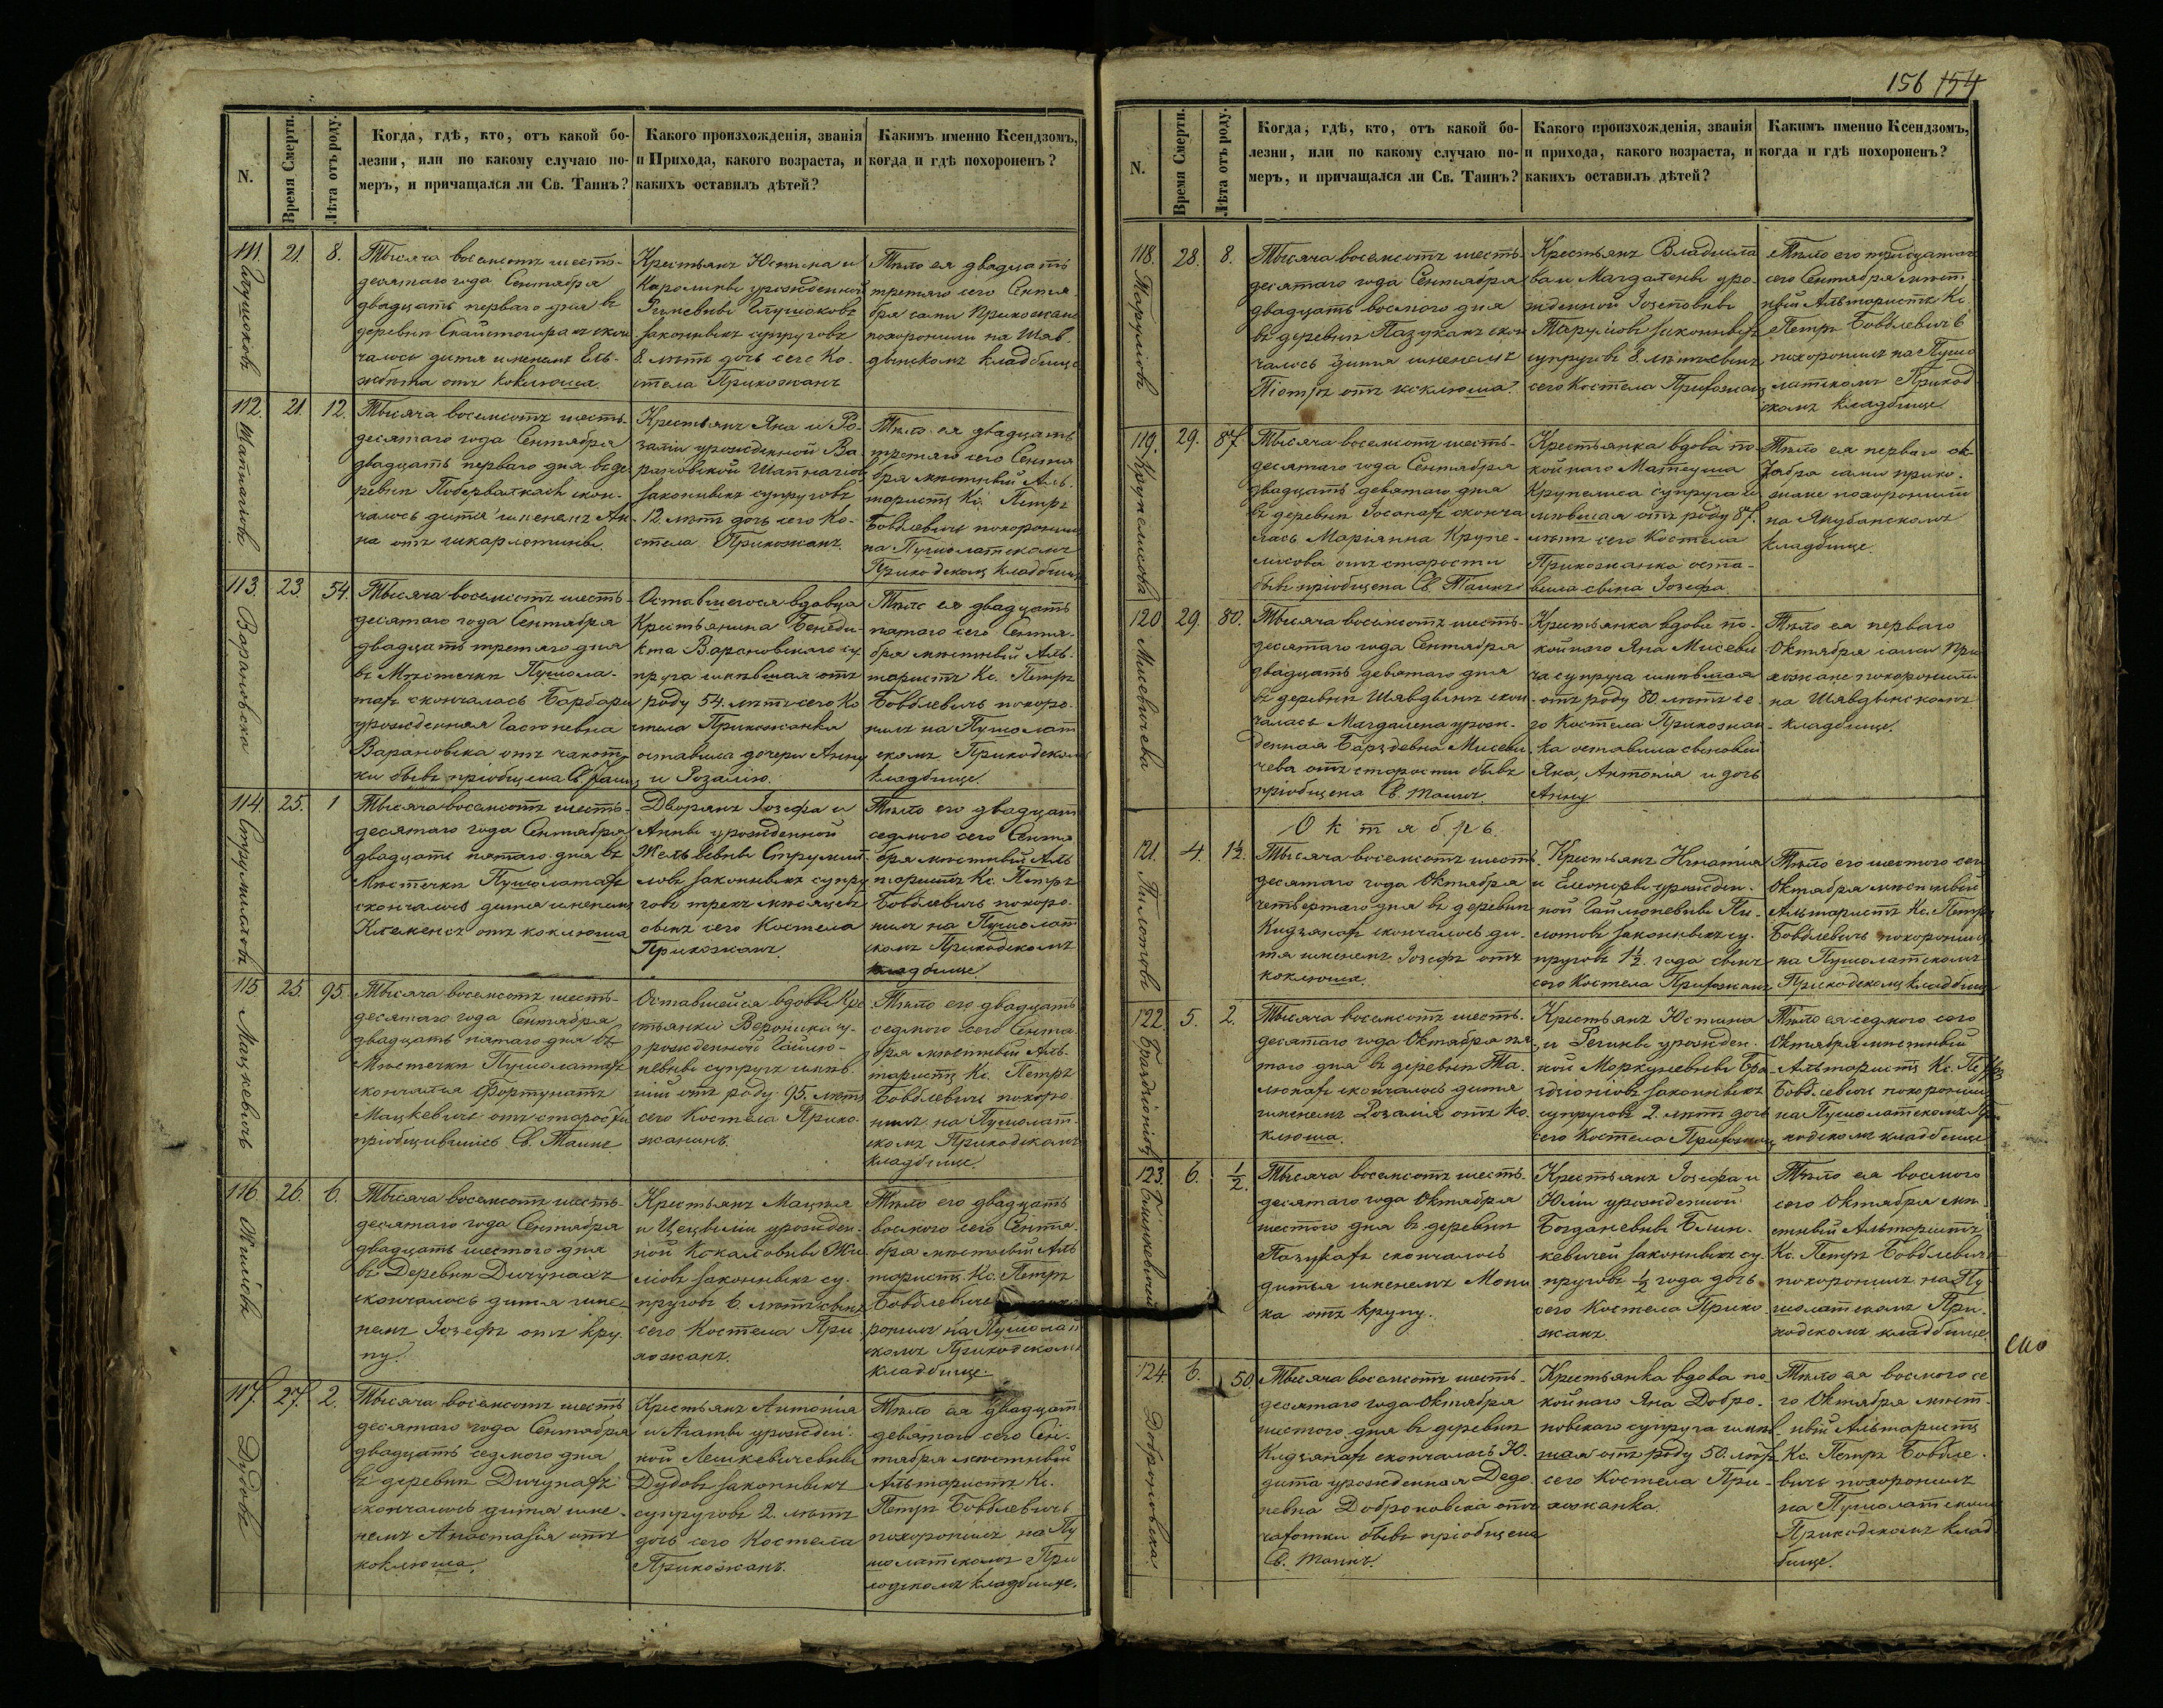 156 154
N.
Время Смерти.
Лѣта отъ роду.
Когда, гдѣ, кто, отъ какой бо-
лезни, или по какому случаю по-
меръ, и причащался ли Св. Таинъ?
Какого произхожденія, званія
и Прихода, какого возраста, и
какихъ оставилъ дѣтей?
Какимъ именно Ксендзомъ,
когда и гдѣ похороненъ?
111.
21.
8.
Тысяча восемсотъ шесть-
десятаго года Сентября
двадцать перваго дня въ
чалось дитя именемъ Ель-
жбѣта отъ коклюша.
Крестьянъ Юстина и
Каролины урожденной
законныхъ супруговъ
8. лѣтъ дочь сего Ко-
стела Прихожанъ
Тѣло ея двадцать
третяго сего Сентя-
бря сами Прихожане
похоронили на Шяв-
дынскомъ кладбище
112.
21.
12.
Тысяча восемсотъ шесть-
десятаго года Сентября
двадцать перваго дня въ де
ревни скон-
чалось дитя именемъ Ан-
на отъ шкарлятины.
Крестьянъ Яна и Ро-
заліи урожденной Ва
рановской
законныхъ супруговъ
12. лѣтъ дочь сего Ко-
стела Прихожанъ.
Тѣло ея двадцать
третяго сего Сентя
бря мѣстный Аль-
тористъ Кс. Петръ
Бовблевичъ похоронилъ
на Пушолатскомъ
Приходскомъ кладбище
113.
Варановска
23.
54.
Тысяча восемсотъ шесть-
десятаго года Сентября
двадцать третяго дня
въ Мѣстечки Пушола-
тахъ скончалась Барбара
урожденная
Варановска отъ чахот
ки бывъ пріобщена Св. Таинъ
Оставшегося вдовца
Крестьянина Бенеди-
кта Варановскаго су
пруга имѣвшая отъ
роду 54. лѣтъ сего Ко
стела Прихожанка
оставила дочери Анну
и Розалію.
Тѣло ея двадцать
пятаго сего Сентя-
бря мѣстный Аль-
тористъ Кс. Петръ
Бовблевичъ похоро-
нилъ на Пушолат
скомъ Приходскомъ
кладбище.
114.
Струмиловъ
25.
1
Тысяча восемсотъ шесть-
десятаго года Сентября
двадцать пятаго дня въ
Мѣстечки Пушолатахъ
скончалось дитя именемъ
Клеменсъ отъ коклюша
Дворянъ Іозефа и
Анны урожденной
Струмил-
ловъ законныхъ супру
говъ трехъ мѣсяцевъ
сынъ сего Костела
Прихожанъ.
Тѣло его двадцать
седмого сего Сентя
бря мѣстный Аль
тористъ Кс. Петръ
Бовблевичъ похоро-
нилъ на Пушолат
скомъ Приходскомъ
кладбище
115
Мацкевичъ
25.
95.
Тысяча восемсотъ шесть-
десятаго года Сентября
двадцать пятаго дня въ
Мѣстечки Пушолатахъ
скончался Фортунатъ
Мацкевичъ отъ старости
пріобщившись Св. Таинъ
Оставшейся вдовы Кре
стьянки Вероники у-
рожденной Гайлю-
невны супругъ имѣв-
шій отъ роду 95. лѣтъ
сего Костела Прихо-
жанинъ.
Тѣло его двадцать
седмого сего Сентя-
бря мѣстный Аль-
тористъ Кс. Петръ
Бовблевичъ похоро
нилъ на Пушолат-
скомъ Приходскомъ
кладбище.
116.
26.
6.
Тысяча восемсотъ шесть-
десятаго года Сентября
двадцать шестого дня
въ Деревни Дичунахъ
скончалось дитя име-
немъ Іозефъ отъ кру-
пу.
Крестьянъ Мацея
и Цецыліи урожден-
ной
законныхъ су-
пруговъ 6. лѣтъ сынъ
сего Костела При
хожанъ.
Тѣло его двадцать
восмого сего Сентя-
бря мѣстный Аль
тористъ Кс. Петръ
Бовблевичъ похо-
ронилъ на Пушолат
скомъ Приходскомъ
кладбище.
117.
Дудовъ
27.
2.
Тысяча восемсотъ шесть
десятаго года Сентября
двадцать седмого дня
въ деревни Дичунахъ
скончалось дитя име-
немъ Анастасія отъ
коклюша.
Крестьянъ Антонія
и Агаты урожден-
ной Лешкевичевны
Дудовъ законныхъ
супруговъ 2. лѣтъ
дочь сего Костела
Прихожанъ.
Тѣло ея двадцать
девятого сего Сен-
тября мѣстный
Альтористъ Кс.
Петръ Бовблевичъ
похоронилъ на Пу
шолатскомъ При
ходскомъ кладбище.
N.
Время Смерти.
Лѣта отъ роду.
Когда, гдѣ, кто, отъ какой бо-
лезни, или по какому случаю по-
меръ, и причащался ли Св. Таинъ?
Какого произхожденія, званія
и прихода, какого возраста, и
какихъ оставилъ дѣтей?
Какимъ именно Ксендзомъ,
когда и гдѣ похороненъ?
118.
28.
8.
Тысяча восемсотъ шесть-
десятаго года Сентября
двадцать восмого дня
въ деревни Пазуканъ скон
чалось дитя именемъ
Піотръ отъ коклюша.
Крестьянъ Владисла
ва и Магдалены уро-
жденной
законныхъ
супруговъ 8. лѣтъ сынъ
сего Костела Прихожанъ
Тѣло его тридцатаго
сего Сентября мѣст-
ный Альтористъ Кс
Петръ Бовблевичъ
похоронилъ на Пушо
латскомъ Приход
скомъ кладбище
119.
Крупелисова
29.
87.
Тысяча восемсотъ шесть-
десятаго года Сентября
двадцать девятаго дня
въ деревни сконча
лась Маріянна Крупе-
лисова отъ старости
бывъ пріобщена Св. Таинъ
Крестьянка вдова по
койнаго Матеуша
Крупелиса супруга и
мѣвшая отъ роду 87.
лѣтъ сего Костела
Прихожанка оста-
вила сына Іозефа.
Тѣло ея перваго ок-
тября сами прихо-
жане похоронили
на Якубанскомъ
кладбище.
120
Мисевичева
29.
80.
Тысяча восемсотъ шесть-
десятаго года Сентября
двадцать девятаго дня
въ деревни Шявдынъ скон
чалась Магдалена урож-
денная Мисеви-
чева отъ старости бывъ
пріобщена Св. Таинъ.
Крестьянка вдова по-
койнаго Яна Мисеви
ча супруга имѣвшая
отъ роду 80. лѣтъ се-
го Костела Прихожан-
ка оставила сыновей
Яна, Антонія и дочь
Анну
Тѣло ея перваго
Октября сами При
хожане похоронили
на Шявдынскомъ
кладбище.
Октябрь.
121.
Пилотовъ
4.
1½.
Тысяча восемсотъ шесть-
десятаго года Октября
четвертаго дня въ деревни
Кидзянахъ скончалось ди-
тя именемъ Іозефъ отъ
коклюша.
Крестьянъ Игнатія
и Елеоноры урожден-
ной Гайлюневны Пи-
лотовъ законныхъ су-
пруговъ 1½ года сынъ
сего Костела Прихожанъ
Тѣло его шестого сего
Октября мѣстный
Альтористъ Кс. Петръ
Бовблевичъ похоронилъ
на Пушолатскомъ
Приходскомъ кладбище
122.
5.
2.
Тысяча восемсотъ шесть-
десятаго года Октября пя
таго дня въ деревни Та-
люнахъ скончалось дитя
именемъ Розалія отъ ко-
клюша.
Крестьянъ Юстина
и Регины урожден-
ной Моркуневны
законныхъ
супруговъ 2. лѣтъ дочь
сего Костела Прихожанъ
Тѣло ея седмого сего
Октября мѣстный
Альтористъ Кс. Петръ
Бовблевичъ похоронилъ
на Пушолатскомъ При
ходскомъ кладбище
123.
6.
½.
Тысяча восемсотъ шесть-
десятаго года Октября
шестого дня въ деревни
Пазукахъ скончалось
дитья именемъ Мони
ка отъ крупу.
Крестьянъ Іозефа и
Юліи урожденной
Богданевны Блин-
кевичей законныхъ су-
пруговъ ½ года дочь
сего Костела Прихо
жанъ.
Тѣло ея восмого
сего Октября мѣ-
стный Альтористъ
Кс. Петръ Бовблевичъ
похоронилъ на Пу
шолатскомъ При-
ходскомъ кладбище.
124
Доброновска
6.
50
Тысяча восемсотъ шесть-
десятаго года Октября
шестого дня въ деревни
Кидзянахъ скончалась Ю-
дита урожденная Дедо-
невна Доброновска отъ
чахотки бывъ пріобщена
Св. Таинъ.
Крестьянка вдова по
койнаго Яна Добро-
новскаго супруга имѣв-
шая отъ роду 50. лѣтъ
сего Костела При-
хожанка.
Тѣло ея восмого се
го Октября мѣст-
ный Альтористъ
Кс. Петръ Бовбле-
вичъ похоронилъ
на Пушолатскомъ
Приходскомъ клад
бище.